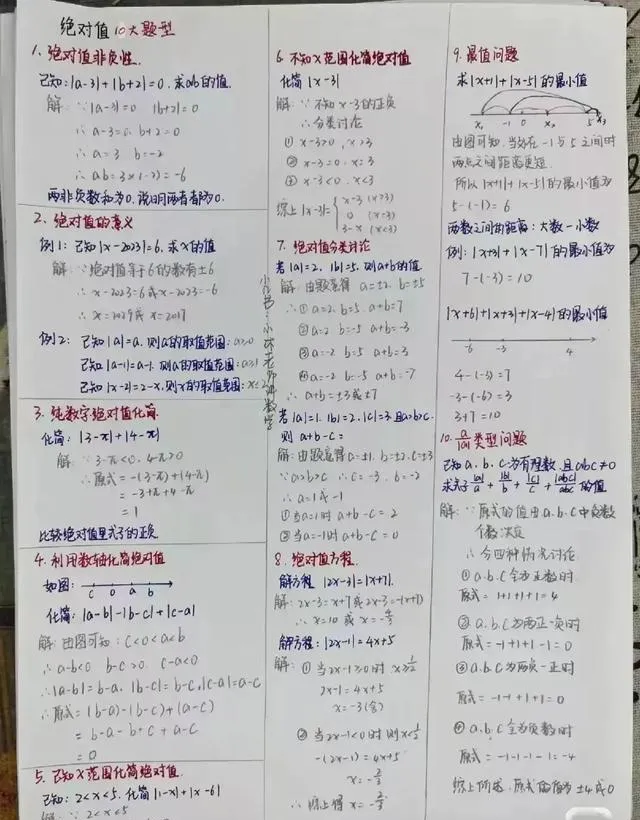 绝对值10大题型
1. 绝对值非负性.
已知:|a-3|+|b+2|=0,求ab的值.
解: ∵|a-3|=0 |b+2|=0
∴a-3=0, b+2=0
∴a=3 b=-2
∴ab=3×(-2)=-6
两非负数和为0,说明两者都为0.
2. 绝对值的意义
例1: 已知|x-2023|=6,求x的值
解: ∵绝对值等于6的数有±6
∴x-2023=6或x-2023=-6
∴x=2029或x=2017
例2: 已知|a|=a,则a的取值范围:a≥0
已知|a-1|=a-1,则a的取值范围:a≥1
已知|x-2|=2-x,则x的取值范围:x≤2
3. 纯数字绝对值化简
化简: |3-π|+|4-π|
解: ∵3-π<0, 4-π>0
∴原式=-(3-π)+(4-π)
=-3+π+4-π
=1
比较绝对值里式子的正负
4. 利用数轴化简绝对值
如图: c 0 a b
化简: |a-b|-|b-c|+|c-a|
解: 由图可知: c<0<a<b
∴a-b<0 b-c>0 c-a<0
∴|a-b|=b-a, |b-c|=b-c,|c-a|=a-c
∴原式=(b-a)-(b-c)+(a-c)
=b-a-b+c+a-c
=0
5. 已知x范围化简绝对值
已知: 2<x<5, 化简|1-x|+|x-6|
解: ∵2<x<5
6. 不知x范围化简绝对值
化简|x-3|
解: ∵不知x-3的正负
∴分类讨论
① x-3>0, x>3
② x-3=0, x=3
③ x-3<0, x<3
综上|x-3|= x-3 (x>3)
0 (x=3)
3-x (x<3)
7. 绝对值分类讨论
若|a|=2, |b|=5,则a+b的值.
解: 由题意得 a=±2, b=±5
∴①a=2, b=5, a+b=7
②a=2 b=-5 a+b=-3
③a=-2 b=5 a+b=3
④a=-2 b=-5 a+b=-7
∴a+b=±3或±7
若|a|=1, |b|=2, |c|=3,且a>b>c.
则 a+b-c=
解: 由题意得a=±1, b=±2, c=±3
∵a>b>c ∴c=-3, b=-2
∴a=1或-1
①当a=1时 a+b-c=2
③当a=-1时 a+b-c=0
8. 绝对值方程.
解方程 |2x-3|=|x+7|.
解: 2x-3=x+7或2x-3=-(x+7)
∴x=10 或 x=-4/3
解方程: |2x-1|=4x+5
解: ①当2x-1≥0时 x≥1/2
2x-1=4x+5
x=-3(舍)
②当2x-1<0时 则x<1/2
-(2x-1)=4x+5
x=-2/3
∴综上得 x=-2/3
9. 最值问题
求|x+1|+|x-5|的最小值
x₁ -1 0 x₂ 5 x₃
由图可知,当x在-1与5之间时
两点之间距离更短.
所以|x+1|+|x-5|的最小值为
5-(-1)=6
两数之间的距离: 大数-小数
例: |x+3|+|x-7|的最小值为
7-(-3)=10
|x+6|+|x+3|+|x-4|的最小值
-6 -3 4
4-(-3)=7
-3-(-6)=3
3+7=10
10. a/|a|类型问题
已知a、b、c为有理数,且abc≠0
解: ∵原式的值由a、b、c中负数
个数决定
∴分四种情况讨论
①a、b、c全为正数时
原式=1+1+1+1=4
②a、b、c为两正一负时
原式=-1+1+1-1=0
③a、b、c为两负一正时
原式=-1-1+1+1=0
④a、b、c全为负数时
原式=-1-1-1-1=-4
综上所述,原式的值为±4或0